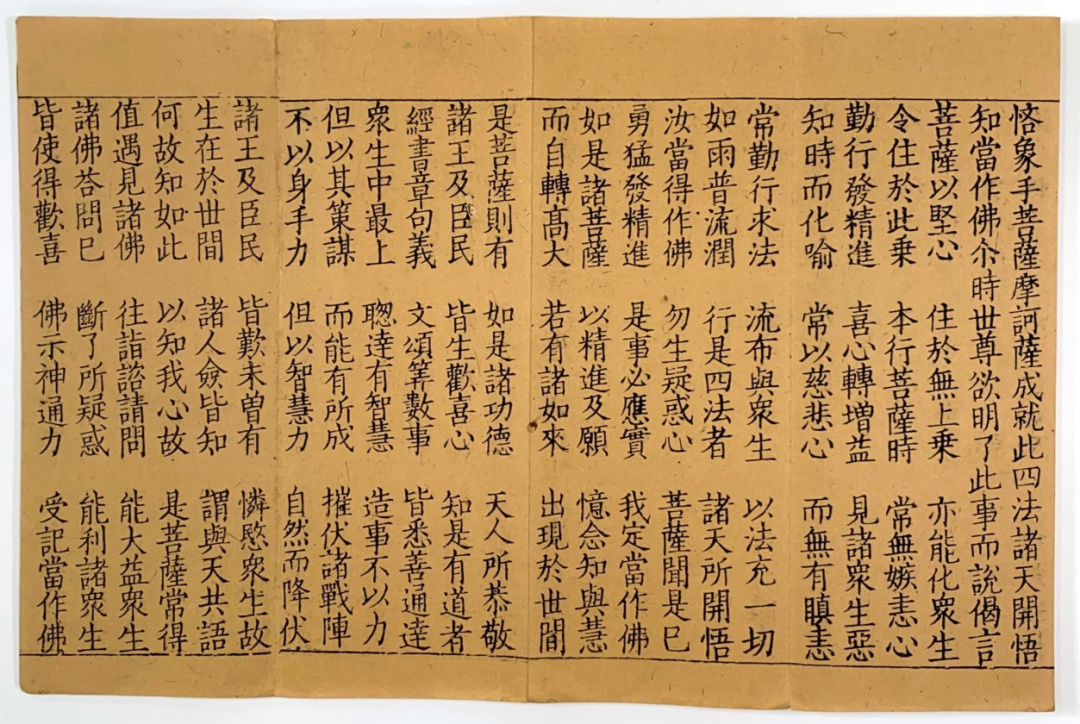 悋象手菩薩摩訶薩成就此四法諸天開悟
知當作佛尒時世尊欲明了此事而說偈言
菩薩以堅心 住於無上乗 亦能化衆生
令住於此乗 本行菩薩時 常無嫉恚心
勤行發精進 喜心轉增益 見諸衆生惡
知時而化喻 常以慈悲心 而無有瞋恚
常勤行求法 流布與衆生 以法充一切
如雨普流潤 行是四法者 諸天所開悟
汝當得作佛 勿生疑惑心 菩薩聞是巳
勇猛發精進 是事必應實 我定當作佛
如是諸菩薩 以精進及願 憶念知與慧
而自轉高大 若有諸如來 出現於世間
是菩薩則有 如是諸功德 天人所恭敬
諸王及臣民 皆生歡喜心 知是有道者
經書章句義 文頌筭數事 皆悉善通達
衆生中最上 聦達有智慧 造事不以力
但以其策謀 而能有所成 摧伏諸戰陣
不以身手力 但以智慧力 自然而降伏
諸王及臣民 皆歎未曽有 憐愍衆生故
生在於世間 諸人僉皆知 謂與天共語
何故知如此 以知我心故 是菩薩常得
值遇見諸佛 往詣諮請問 能大益衆生
諸佛荅問巳 斷了所疑惑 能利諸衆生
皆使得歡喜 佛示神通力 受記當作佛